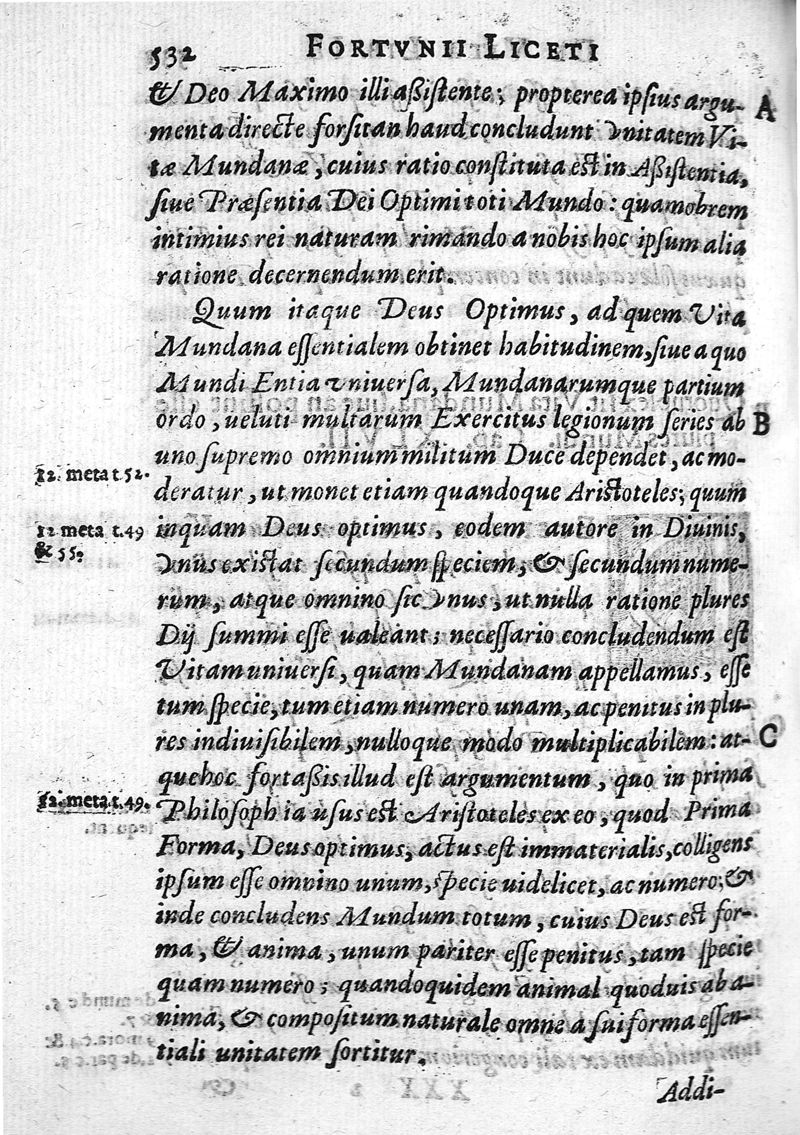 532 FORTVNII LICETI
& Deo Maximo illi aßistente; propterea ipsius argu- A
menta directe forsitan haud concludunt vnitatem Vi-
tæ Mundanæ, cuius ratio constituta est in Aßistentia,
siue Præsentia Dei Optimi toti Mundo: quamobrem
intimius rei naturam rimando a nobis hoc ipsum alia
ratione decernendum erit.
Quum itaque Deus Optimus, ad quem Vita
Mundana essentialem obtinet habitudinem, siue a quo
Mundi Entia vniuersa, Mundanarumque partium
ordo, ueluti multarum Exercitus legionum series ab B
uno supremo omnium militum Duce dependet, ac mo-
12. meta t. 52.
deratur, ut monet etiam quandoque Aristoteles; quum
12 meta t. 49
inquam Deus optimus, eodem autore in Diuinis,
& 55.
vnus existat secundum speciem, & secundum nume-
rum, atque omnino sic vnus, ut nulla ratione plures
Dij summi esse ualeant; necessario concludendum est
Vitam uniuersi, quam Mundanam appellamus, esse
tum specie, tum etiam numero unam, ac penitus in plu-
res indiuisibilem, nulloque modo multiplicabilem: at- C
que hoc fortaßis illud est argumentum, quo in prima
12. meta. t. 49.
Philosophia usus est Aristoteles ex eo, quod Prima
Forma, Deus optimus, actus est immaterialis, colligens
ipsum esse omnino unum, specie uidelicet, ac numero; &
inde concludens Mundum totum, cuius Deus est for-
ma, & anima, unum pariter esse penitus, tam specie
quam numero; quandoquidem animal quoduis ab a-
nima, & compositum naturale omne a sui forma essen-
tiali unitatem sortitur.
Addi-